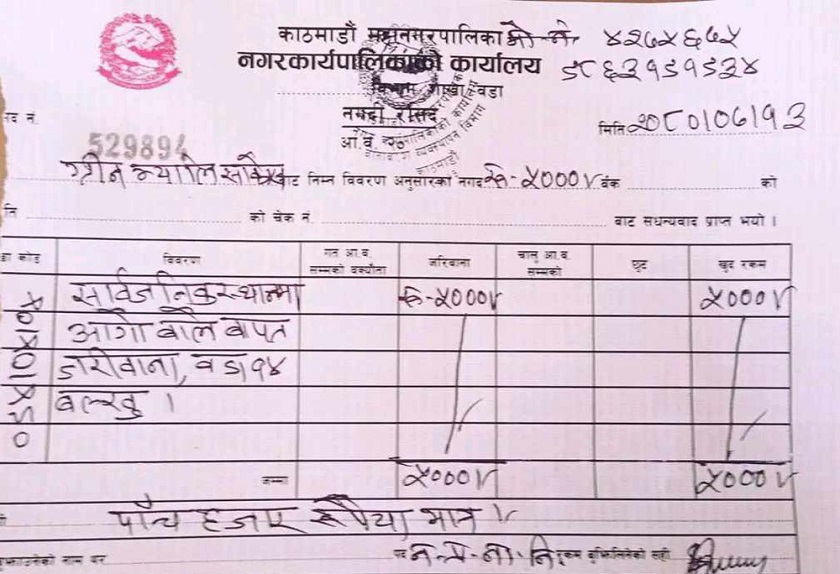 काठमाडौं महानगरपालिका फो. नं. ४२७५६७५
नगरकार्यपालिकाको कार्यालय ९८६३१९१९३४
विभाग शाखा वडा
नगदी रसिद
आ.व. २०
मिति २०८०।०६।१३
529894
ग्रीन भ्यालि सर्भिस बाट निम्न विवरण अनुसारको नगद रू-५०००।- बैंक को
को चेक नं. बाट सधन्यवाद प्राप्त भयो ।
कोड विवरण गत आ.व. सम्मको बक्यौता जरिवाना चालु आ.व. सम्मको छुट खुद रकम
सार्वजनिक स्थानमा रू-५०००।- ५०००।-
आगो बाले बापत
जरीवाना, वडा १४
बल्खु ।
जम्मा ५०००।- ५०००।-
पाँच हजार रूपैया मात्र ।-
बुझाउनेको नाम थर पद न.प्र.ना.नि. रकम बुझिलिनेको सही